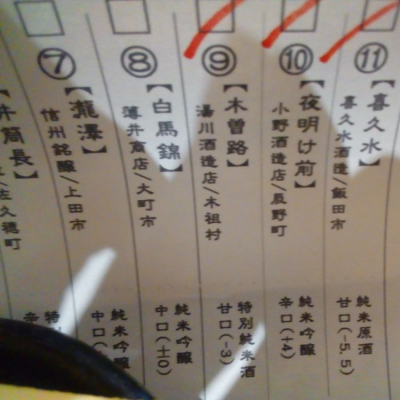 ⑪
【喜久水】
喜久水酒造/飯田市
純米原酒
甘口(-5.5)
⑩
【夜明け前】
小野酒造店/辰野町
純米吟醸
辛口(+4)
⑨
【木曽路】
湯川酒造店/木祖村
特別純米酒
甘口(-3)
⑧
【白馬錦】
薄井商店/大町市
純米吟醸
中口(±0)
⑦
【瀧澤】
信州銘醸/上田市
純米吟醸
中口
井筒長】
佐久穂町